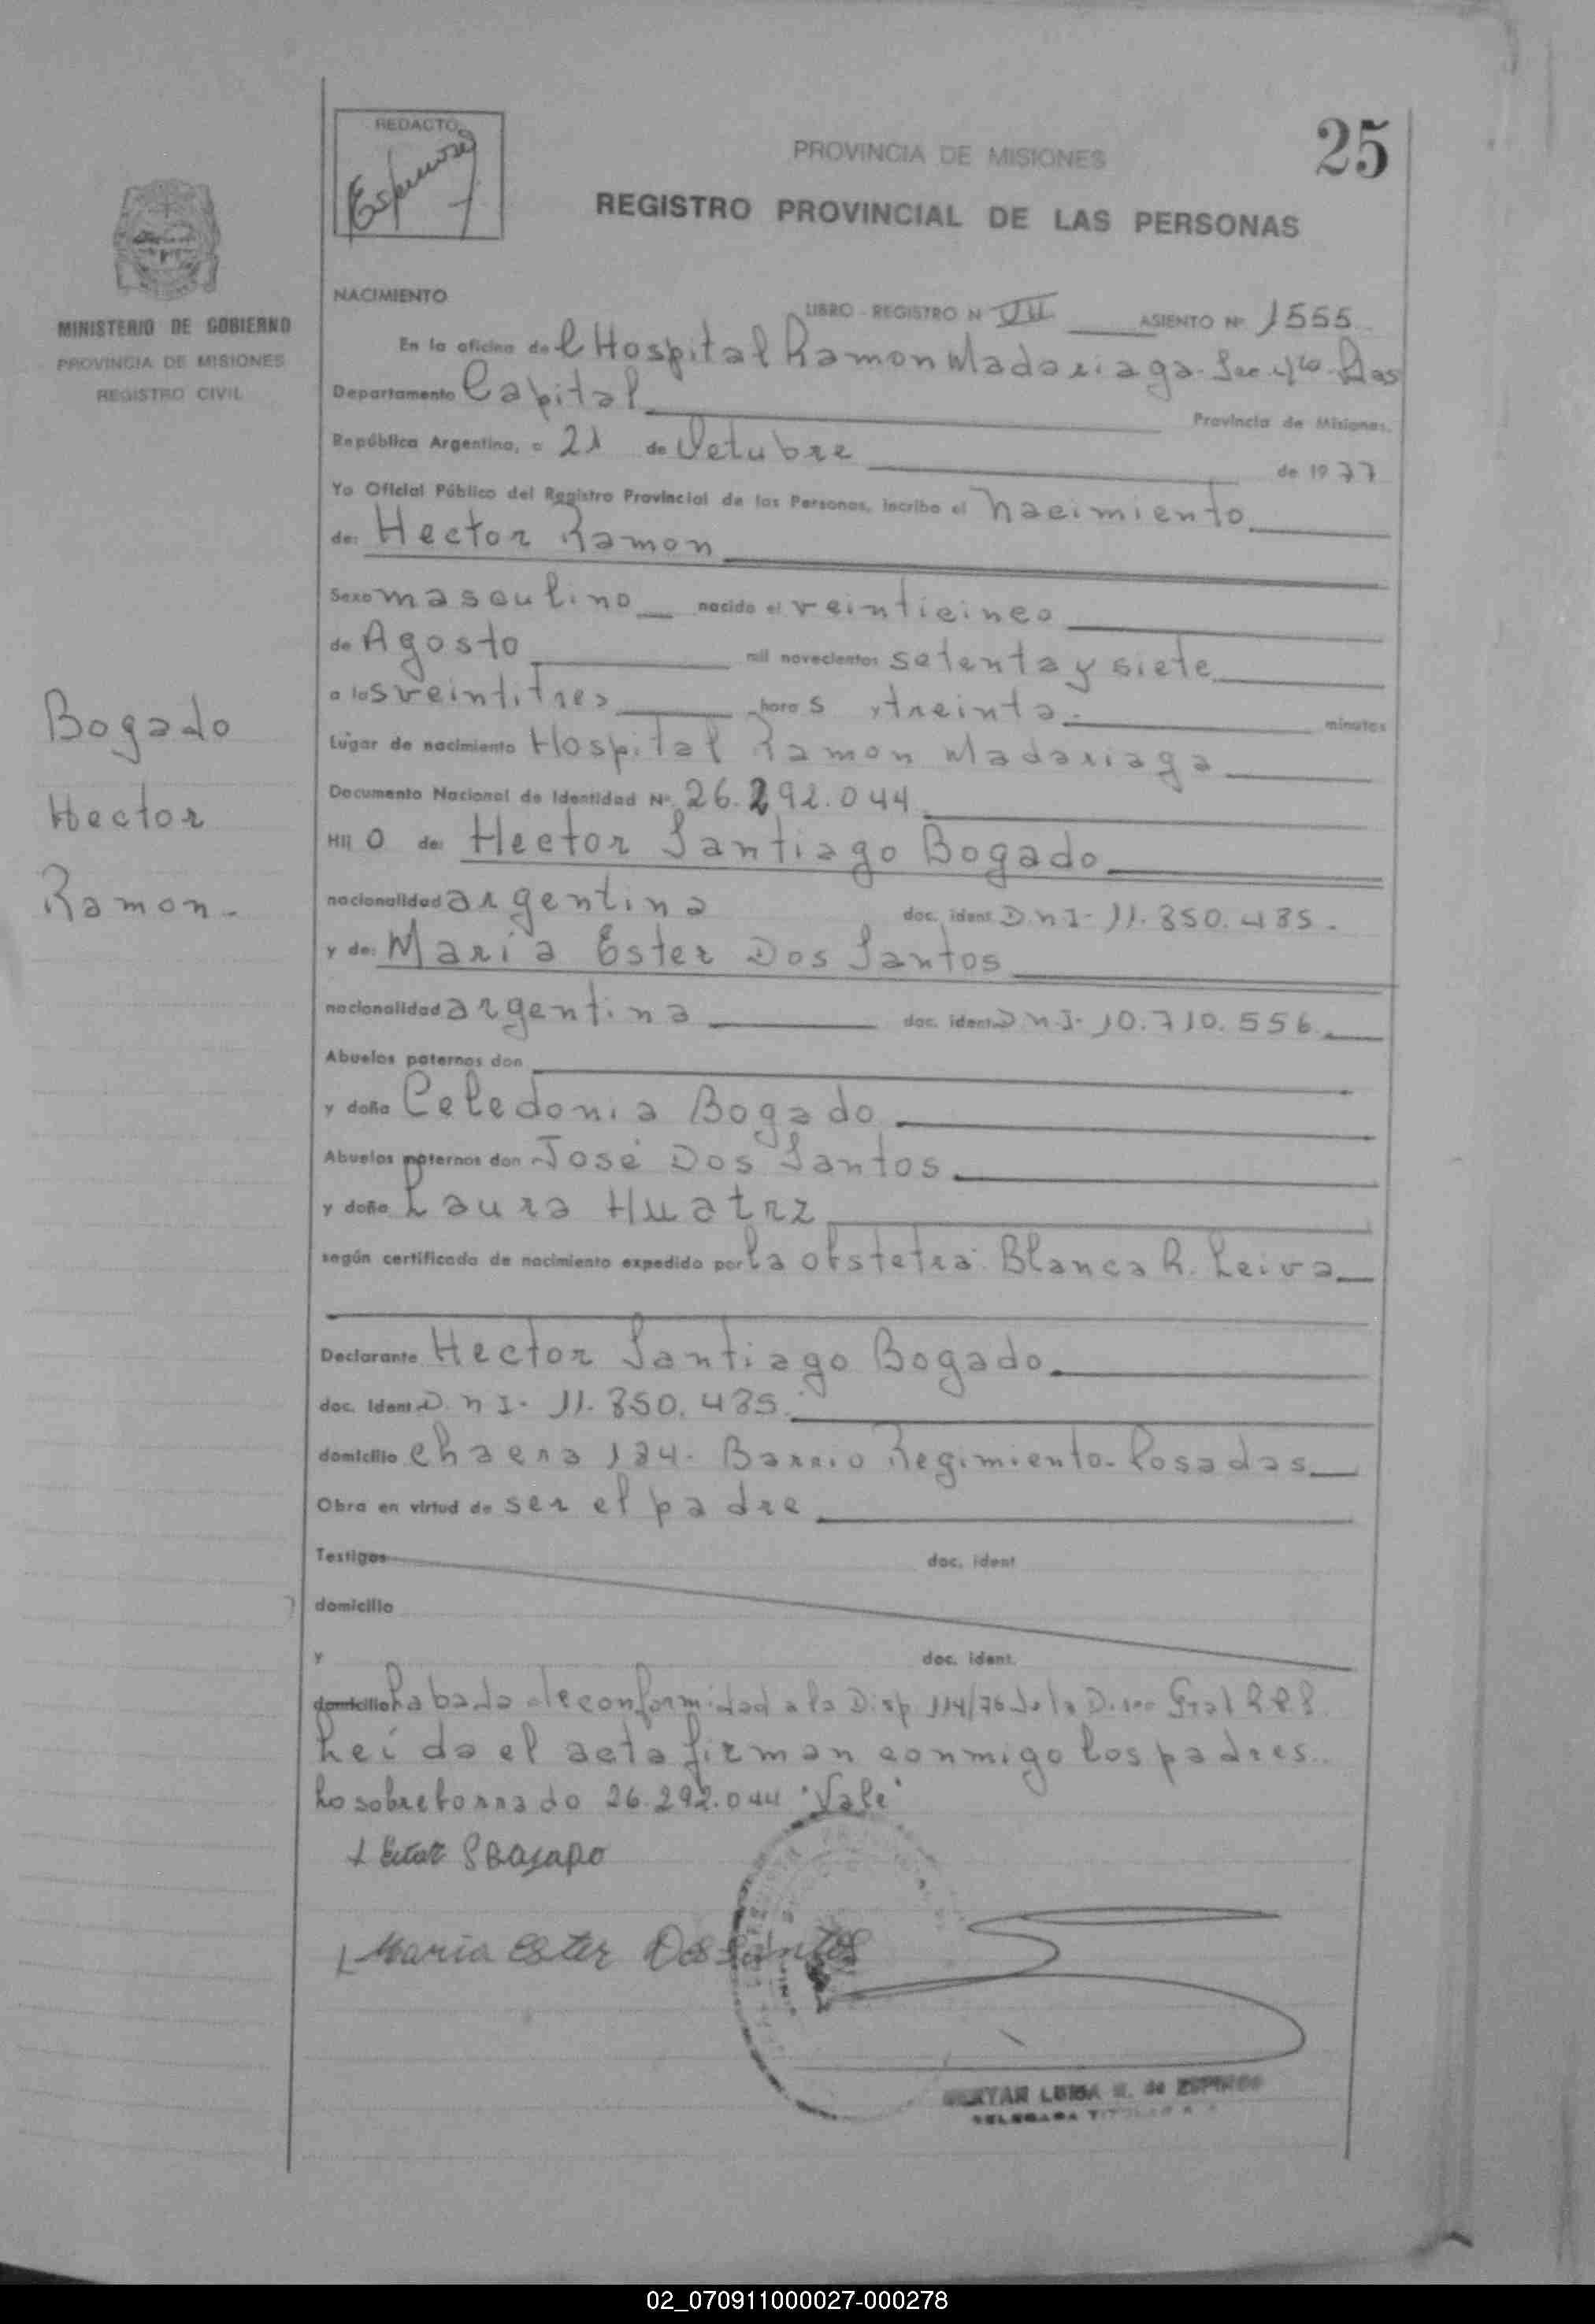 REDACTO
Espinosa
PROVINCIA DE MISIONES
25
REGISTRO PROVINCIAL DE LAS PERSONAS
MINISTERIO DE GOBIERNO
PROVINCIA DE MISIONES
REGISTRO CIVIL
NACIMIENTO
LIBRO - REGISTRO N VII ASIENTO Nº 1555
En la oficina del Hospital Ramon Madariaga. Sec 4ta. Pdas
Departamento Capital Provincia de Misiones.
República Argentina, a 21 de Octubre de 1977
Yo Oficial Público del Registro Provincial de las Personas, incribo el nacimiento
de: Hector Ramon
Sexo masculino nacido el veinticinco
de Agosto mil novecientos setenta y siete
a las veintitres horas y treinta. minutos
Lugar de nacimiento Hospital Ramon Madariaga
Documento Nacional de Identidad Nº 26.292.044
HIJO de: Hector Santiago Bogado
nacionalidad argentina doc. ident. D.n I- 11.850.485.
y de: Maria Ester Dos Santos
nacionalidad argentina doc. ident. D n I- 10.710.556
Abuelos paternos don
y doña Celedonia Bogado
Abuelos maternos don José Dos Santos
y doña Laura Huatrz
según certificado de nacimiento expedido por la obstetra Blanca R. Leiva
Declarante Hector Santiago Bogado
doc. ident D. n I- 11.850.485.
domicilio chacra 124. Barrio Regimiento- Posadas
Obra en virtud de ser el padre
Testigos doc. ident
domicilio
y doc. ident.
domicilio Labada de conformidad a la Disp 114/76 de la Direc Gral R.P.P.
Leída el acta firman conmigo los padres.
Lo sobreborrado 26.292.044 "Vale"
Maria Ester Dos Santos
LUISA de ESPINOSA
DELEGADA TITULAR
Bogado
Hector
Ramon-
02_070911000027-000278